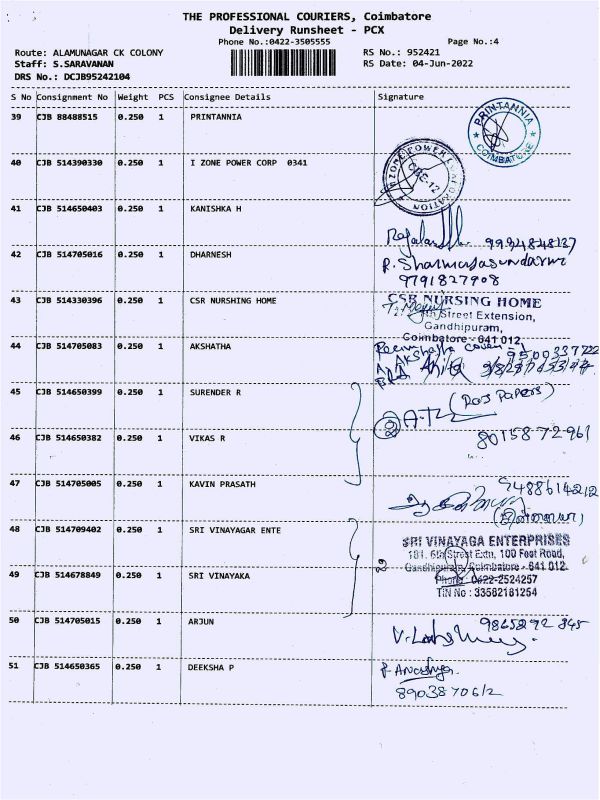 THE PROFESSIONAL COURIERS, Coimbatore
Delivery Runsheet - PCX
Phone No.:0422-3505555
Page No.:4
Route: ALAMUNAGAR CK COLONY
RS No.: 952421
Staff: S.SARAVANAN
RS Date: 04-Jun-2022
DRS No.: DCJB95242104
S No Consignment No Weight PCS Consignee Details Signature
39 CJB 88488515 0.250 1 PRINTANNIA
PRINTANNIA
COIMBATORE
40 CJB 514390330 0.250 1 I ZONE POWER CORP 0341
CBE-12
41 CJB 514650403 0.250 1 KANISHKA H
9994848137
42 CJB 514705016 0.250 1 DHARNESH
R. Sharmasasundaram
9791827908
43 CJB 514330396 0.250 1 CSR NURSHING HOME
CSR NURSING HOME
Street Extension,
Gandhipuram,
Coimbatore - 641 012.
44 CJB 514705083 0.250 1 AKSHATHA
9500337722
45 CJB 514650399 0.250 1 SURENDER R
(Raj Papers)
46 CJB 514650382 0.250 1 VIKAS R
8015872961
47 CJB 514705005 0.250 1 KAVIN PRASATH
9488614212
48 CJB 514709402 0.250 1 SRI VINAYAGAR ENTE
SRI VINAYAGA ENTERPRISES
181, 6th Street Extn, 100 Feet Road,
Gandhipuram, Coimbatore - 641 012.
49 CJB 514678849 0.250 1 SRI VINAYAKA
Phone: 0422-2524257
TIN No : 33582181254
50 CJB 514705015 0.250 1 ARJUN
9865292 845
51 CJB 514650365 0.250 1 DEEKSHA P
8903870612